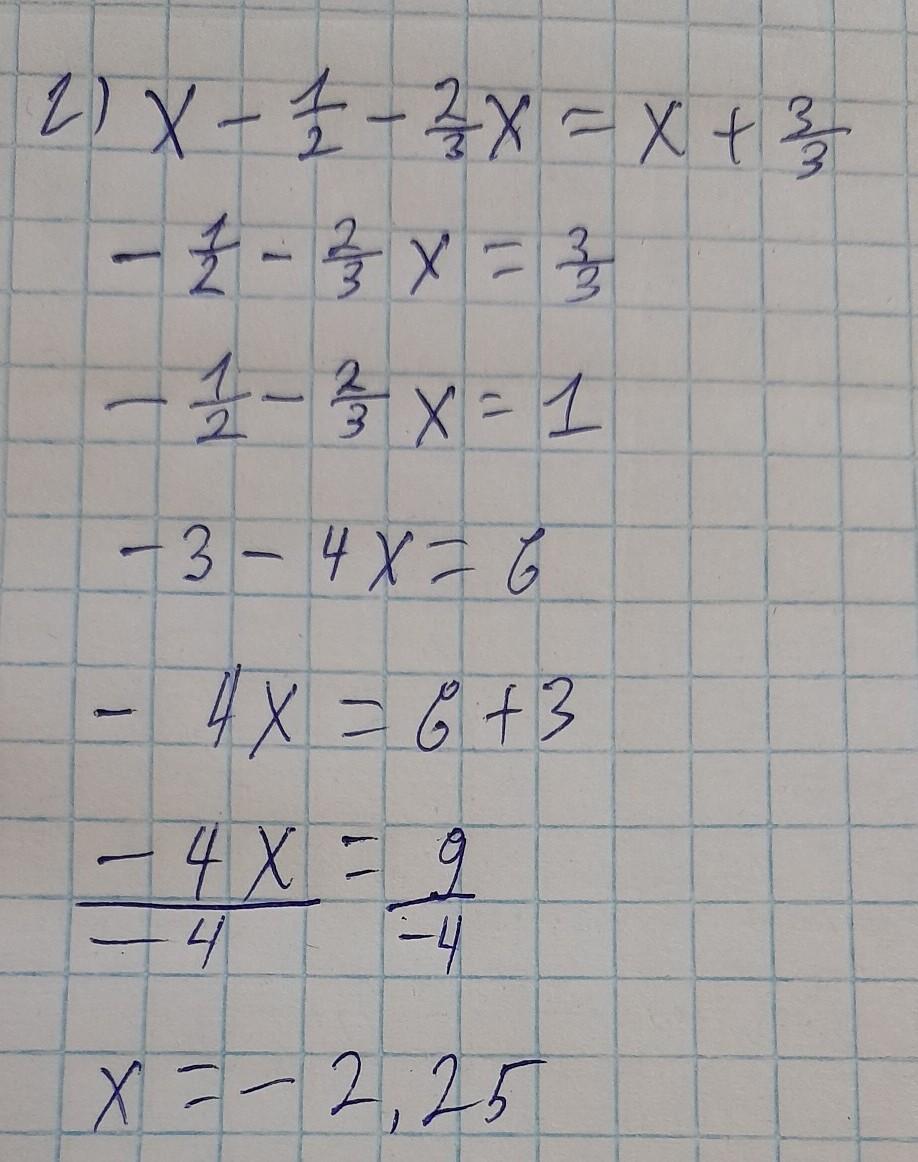 2) x - 1/2 - 2/3 x = x + 3/3
- 1/2 - 2/3 x = 3/3
- 1/2 - 2/3 x = 1
- 3 - 4x = 6
- 4x = 6 + 3
- 4x / - 4 = 9 / -4
x = - 2,25